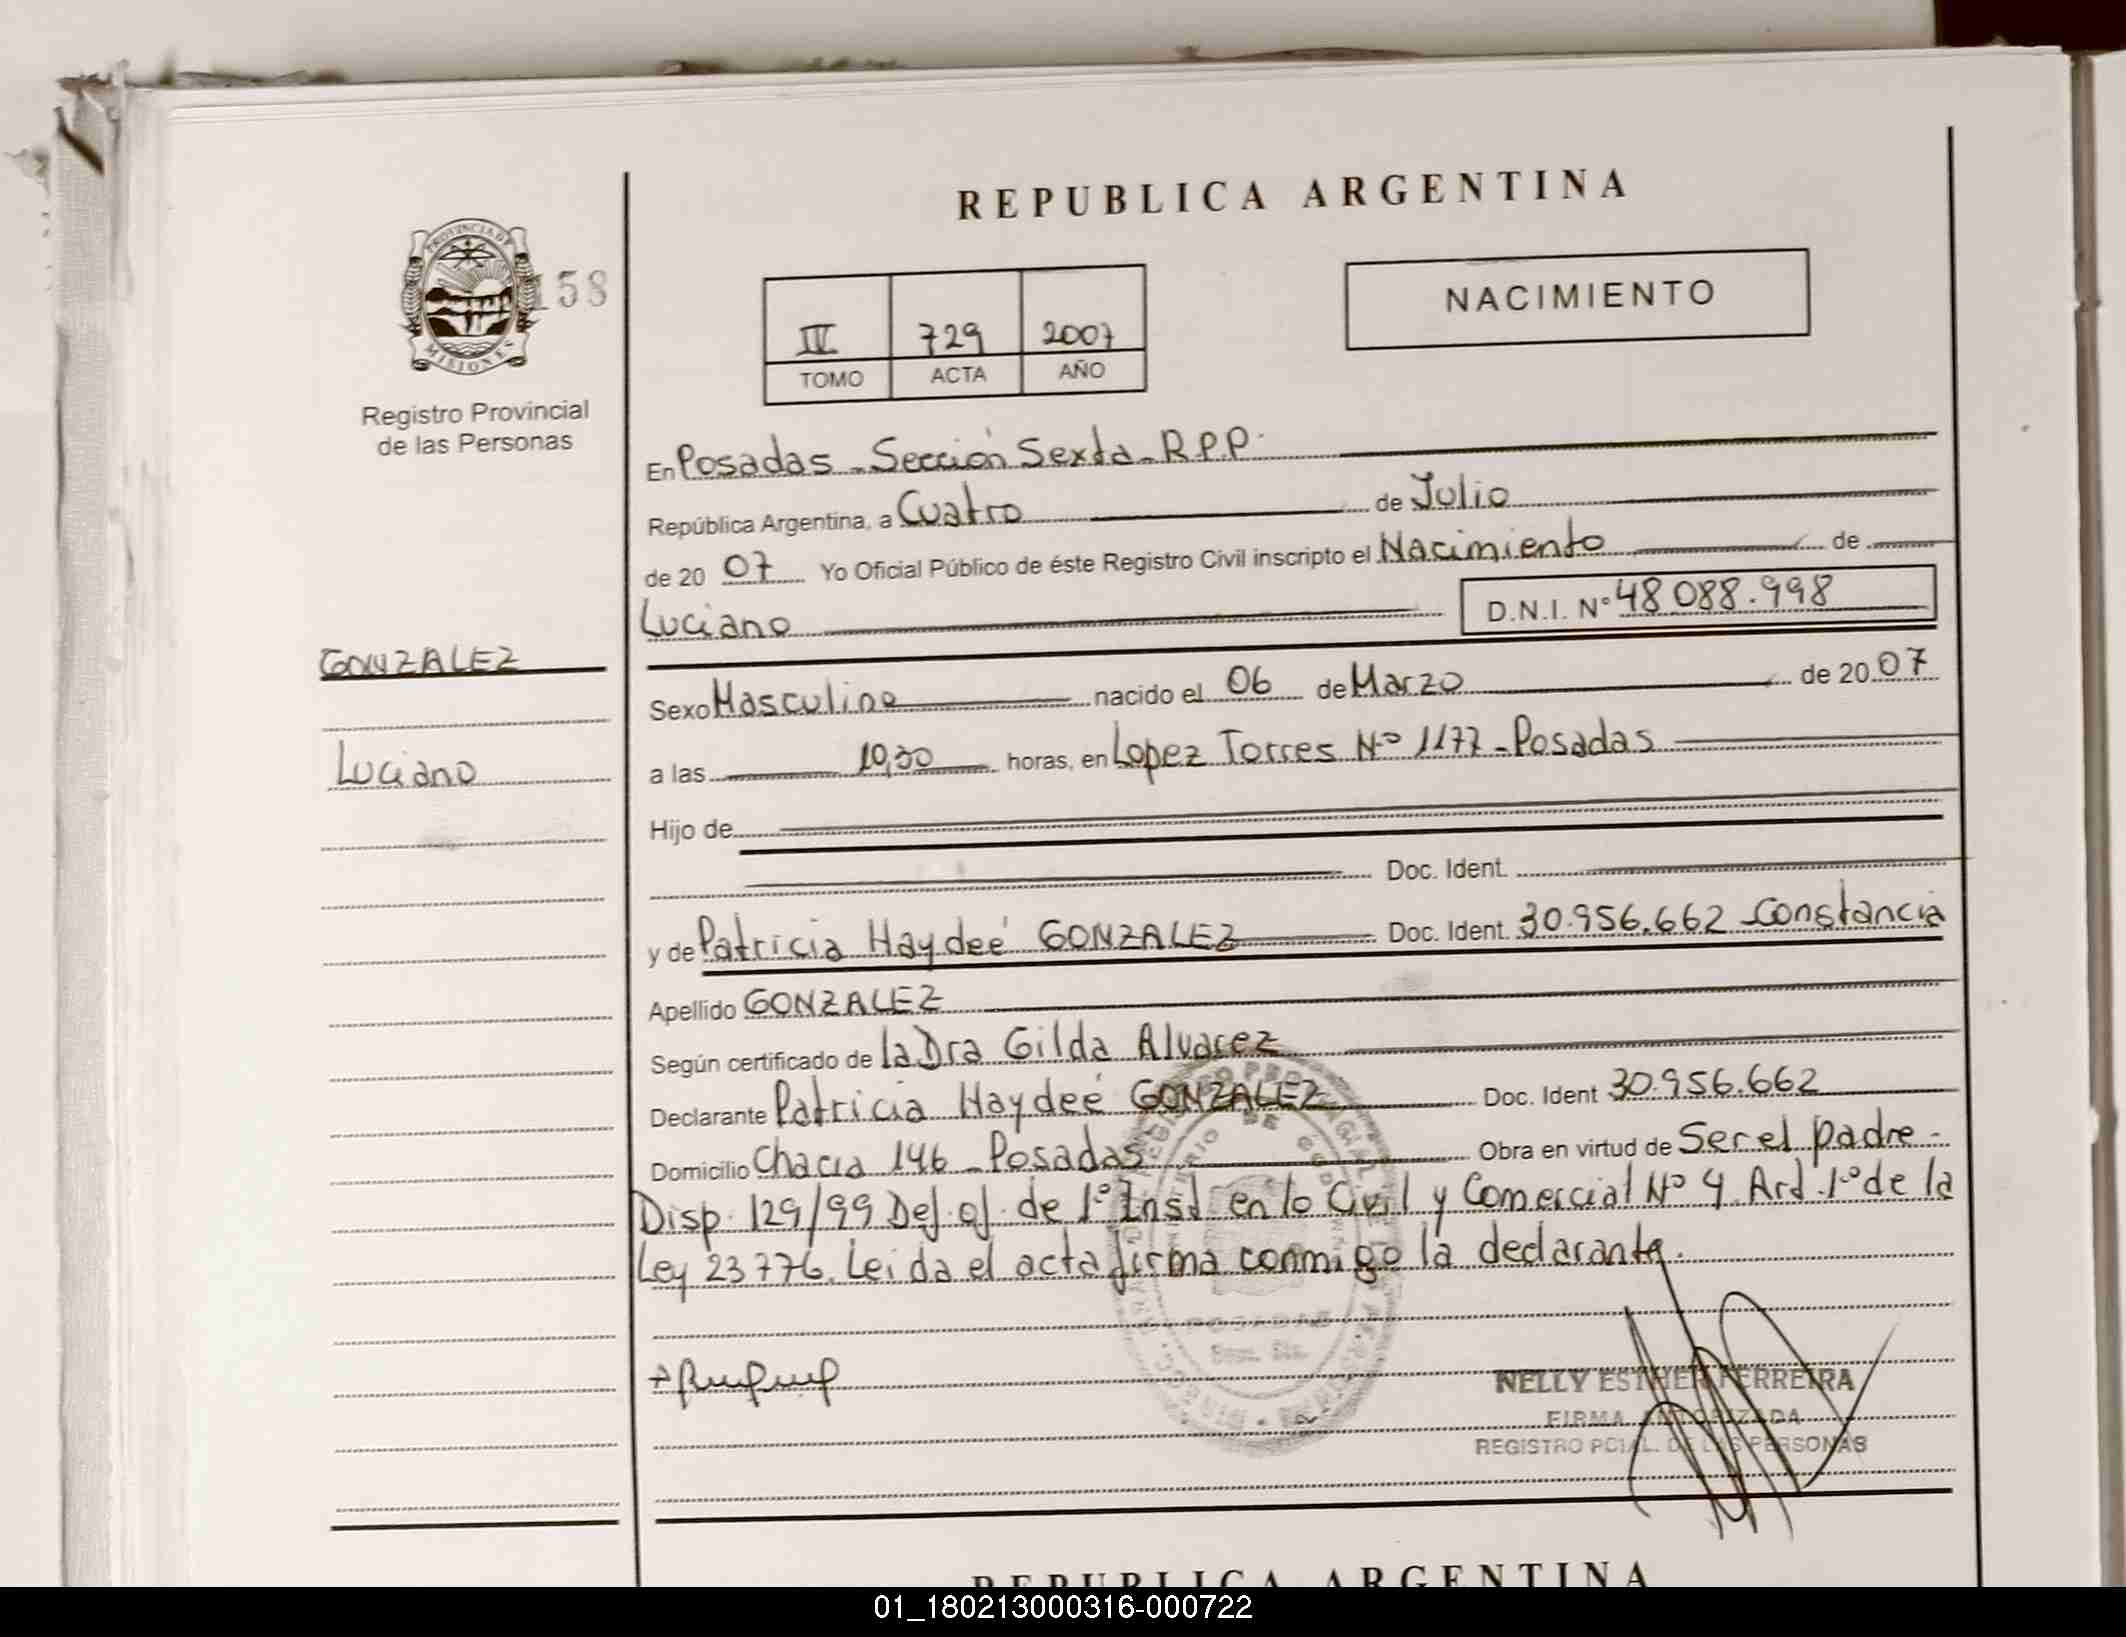 REPUBLICA ARGENTINA
PROVINCIA DE
MISIONES
158
Registro Provincial
de las Personas
NACIMIENTO
IV 729 2007
TOMO ACTA AÑO
En Posadas - Sección Sexta - R.P.P.
República Argentina, a Cuatro de Julio
de 20 07 Yo Oficial Público de éste Registro Civil inscripto el Nacimiento de
Luciano D.N.I. N° 48 088.998
GONZALEZ
Luciano
Sexo Masculino nacido el 06 de Marzo de 20 07
a las 10,30 horas, en Lopez Torres N° 1177 - Posadas
Hijo de
Doc. Ident.
y de Patricia Haydeé GONZALEZ Doc. Ident. 30.956.662 - Constancia
Apellido GONZALEZ
Según certificado de la Dra Gilda Alvarez
Declarante Patricia Haydeé GONZALEZ Doc. Ident 30.956.662
Domicilio 146 - Posadas Obra en virtud de Ser el padre -
Disp. 129/99 Def. of. de 1° Inst en lo Civil y Comercial N° 4 Art. 1° de la
Ley 23776. Leida el acta firma conmigo la declarante.
POSADAS
NELLY ESTHER FERREIRA
FIRMA AUTORIZADA
REGISTRO PCIAL. DE LAS PERSONAS
REPUBLICA ARGENTINA
01_180213000316-000722